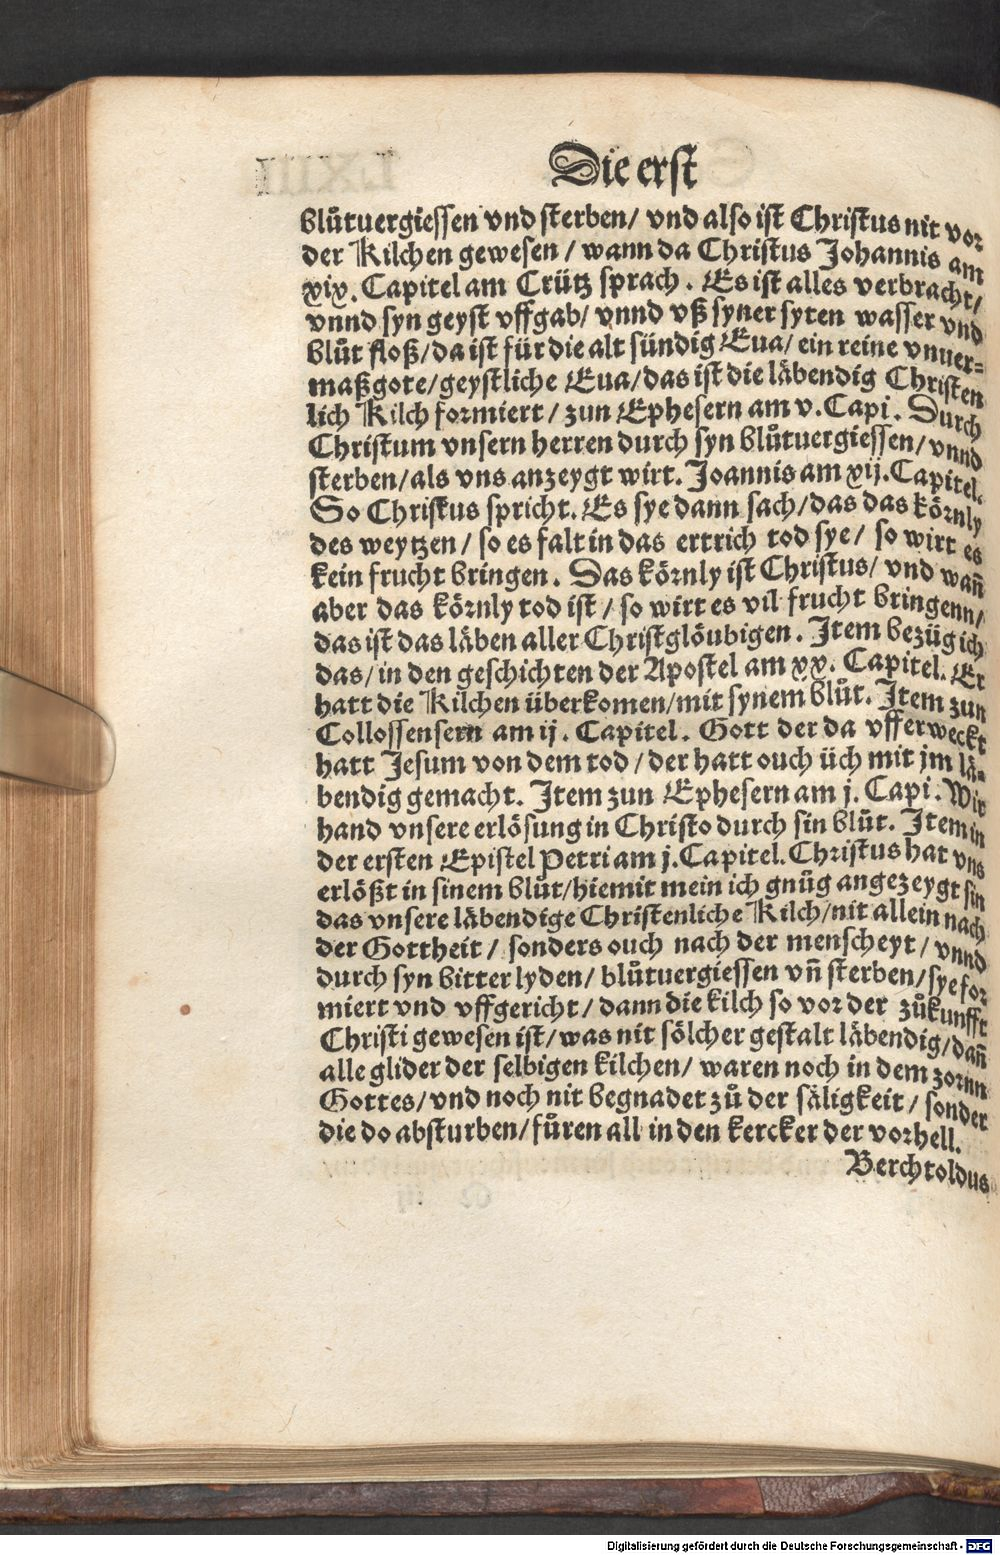 Die erst
blůtuergiessen vnd sterben/ vnd also ist Christus nit vor
der Kilchen gewesen / wann da Christus Johannis am
xix. Capitel am Crütz sprach. Es ist alles verbracht/
vnnd syn geyst vffgab/ vnnd vß syner syten wasser vnd
blůt floß/da ist für die alt sündig Eua/ ein reine vnuer-
maßgote/geystliche Eua/das ist die läbendig Christen
lich Kilch formiert / zun Ephesern am v. Capi. Durch
Christum vnsern herren durch syn blůtuergiessen/ vnnd
sterben/als vns anzeygt wirt. Joannis am xij. Capitel.
So Christus spricht. Es sye dann sach/das das körnly
des weytzen / so es falt in das ertrich tod sye/ so wirt es
kein frucht bringen. Das körnly ist Christus/ vnd wañ
aber das körnly tod ist / so wirt es vil frucht bringenn/
das ist das läben aller Christglöubigen. Item bezüg ich
das/in den geschichten der Apostel am xx. Capitel. Er
hatt die Kilchen überkomen/mit synem blůt. Item zun
Collossensern am ij. Capitel. Gott der da vfferweckt
hatt Jesum von dem tod / der hatt ouch üch mit jm lä-
bendig gemacht. Item zun Ephesern am j. Capi. Wir
hand vnsere erlösung in Christo durch sin blůt. Item in
der ersten Epistel Petri am j. Capitel. Christus hat vns
erlößt in sinem blůt/hiemit mein ich gnůg angezeygt sin
das vnsere läbendige Christenliche Kilch/nit allein nach
der Gottheit / sonders ouch nach der menscheyt / vnnd
durch syn bitter lyden/ blůtuergiessen vñ sterben/sye for
miert vnd vffgericht/ dann die kilch so vor der zůkunfft
Christi gewesen ist/was nit sölcher gestalt läbendig/dañ
alle glider der selbigen kilchen/ waren noch in dem zornn
Gottes/vnd noch nit begnadet zů der säligkeit / sonder
die do absturben/fůren all in den kercker der vorhell.
Berchtoldus
Digitalisierung gefördert durch die Deutsche Forschungsgemeinschaft - DFG